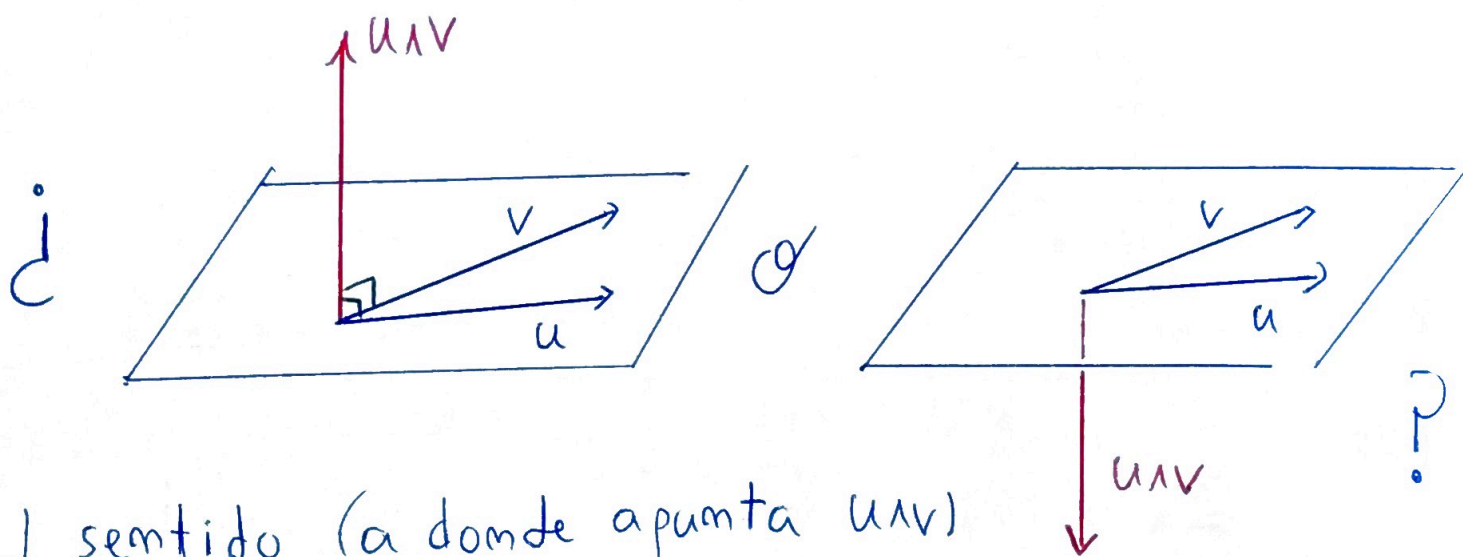 u∧v
¿
v
u
o
v
u
?
u∧v
l sentido (a donde apunta u∧v)